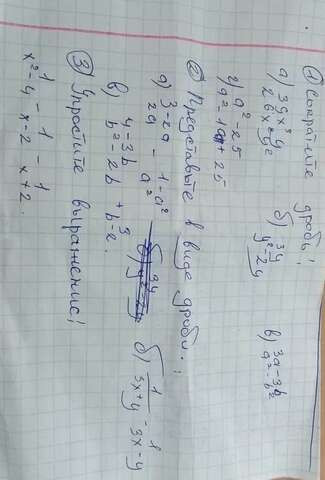 ① Сократите дроби!
а) 39x³y / 26x²y² б) 3y / y²-2y в) 3a-3b / a²-b²
г) a²-25 / a²-10a+25
② Представьте в виде дроби:
а) 3-2a / 2a - 1-a² / a² б) 1 / 3x+y - 1 / 3x-y
в) 4-3b / b²-2b + 3 / b-2.
③ Упростите выражение!
1 / x²-4 - 1 / x-2 - 1 / x+2.